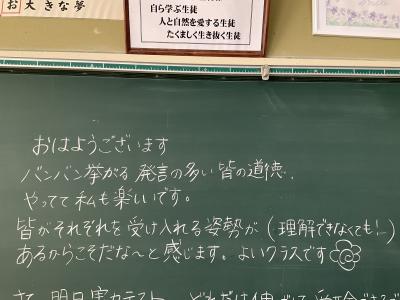 お大きな夢
自ら学ぶ生徒
人と自然を愛する生徒
たくましく生き抜く生徒
おはようございます
バンバン挙がる 発言の多い 皆の道徳.
やってて 私も楽しいです。
皆がそれぞれを受け入れる姿勢が(理解できなくても!…)
あるからこそだな〜と感じます。よいクラスです
明日実力テスト